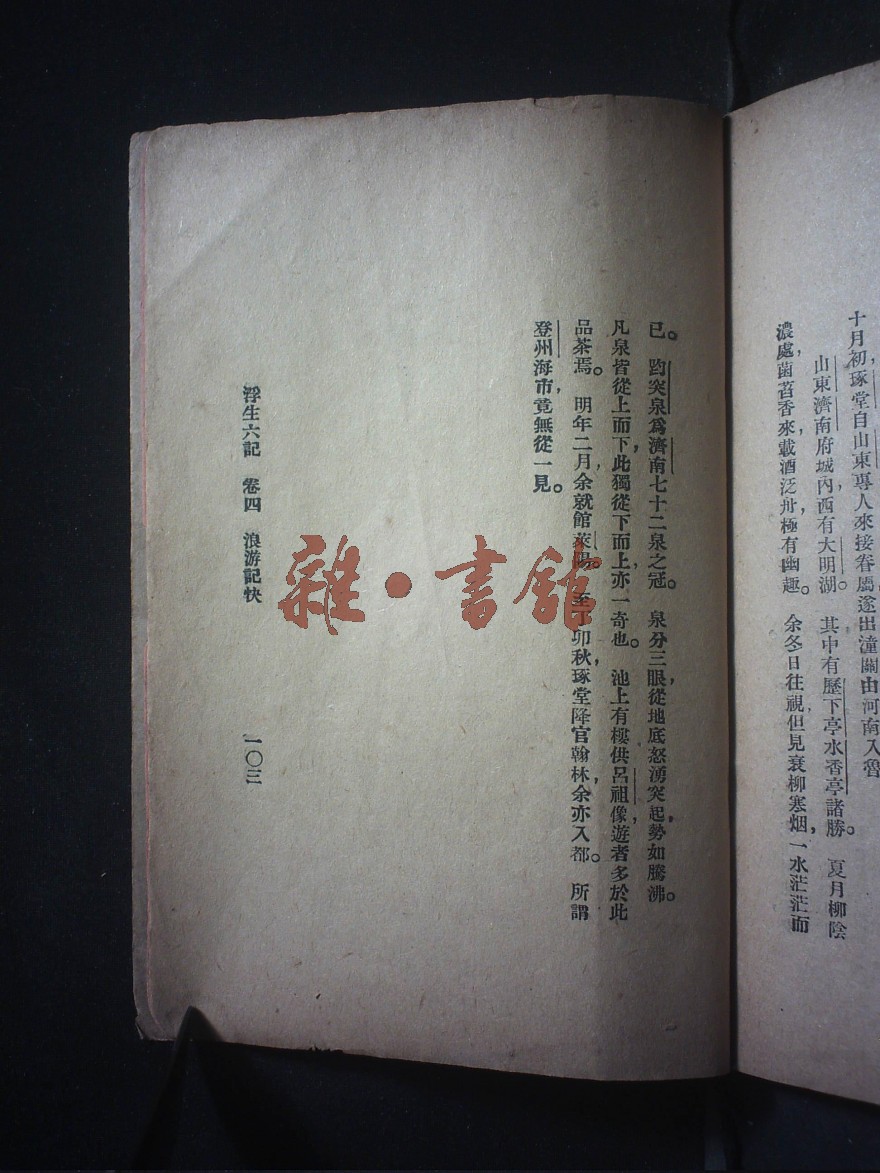 十月初,琢堂自山東專人來接眷屬,遂出潼關,由河南入魯
山東濟南府城內,西有大明湖。其中有歷下亭,水香亭諸勝。夏月柳陰
濃處,菡萏香來,載酒泛舟,極有幽趣。余冬日往視,但見衰柳寒烟,一水茫茫而
已。趵突泉爲濟南七十二泉之冠。泉分三眼,從地底怒湧突起,勢如騰沸。
凡泉皆從上而下,此獨從下而上,亦一奇也。池上有樓,供呂祖像,遊者多於此
品茶焉。明年二月,余就館萊陽。至丁卯秋,琢堂降官翰林,余亦入都。所謂
登州海市,竟無從一見。
浮生六記 卷四 浪游記快 一〇三
雜·書館